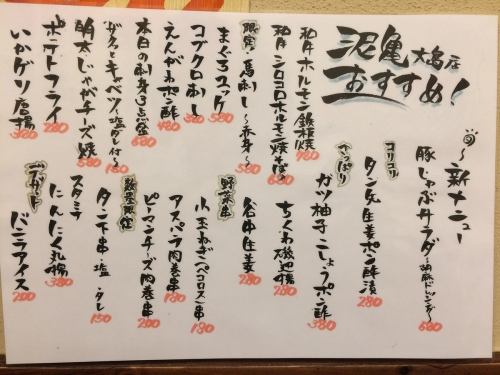 沼亀 大島店
おすすめ！
〜新メニュー
豚しゃぶサラダ〜胡麻ドレッシング〜 680
コリコリ
タン先生姜ポン酢漬 280
さっぱり
ガツ柚子こしょうポン酢 380
和牛ホルモン鉄板焼 780
和牛シロコロホルモン焼そば 680
限定・馬刺し〜赤身〜 580
まぐろユッケ 580
コブクロ刺し 380
えんがわポン酢 480
本日の刺身3点盛 680
ザクッとキャベツ(塩タレ付) 180
明太じゃがチーズ焼 580
ポテトフライ 280
いかゲソ唐揚 380
ちくわ磯辺揚 280
谷中生姜 280
野菜串
小玉ねぎ(ペコロス)串 180
アスパラ肉巻串 180
ピーマンチーズ肉巻串 200
数量限定
タン下串・塩・タレ 150
スタミナ
にんにく丸揚 380
デザート
バニラアイス 200